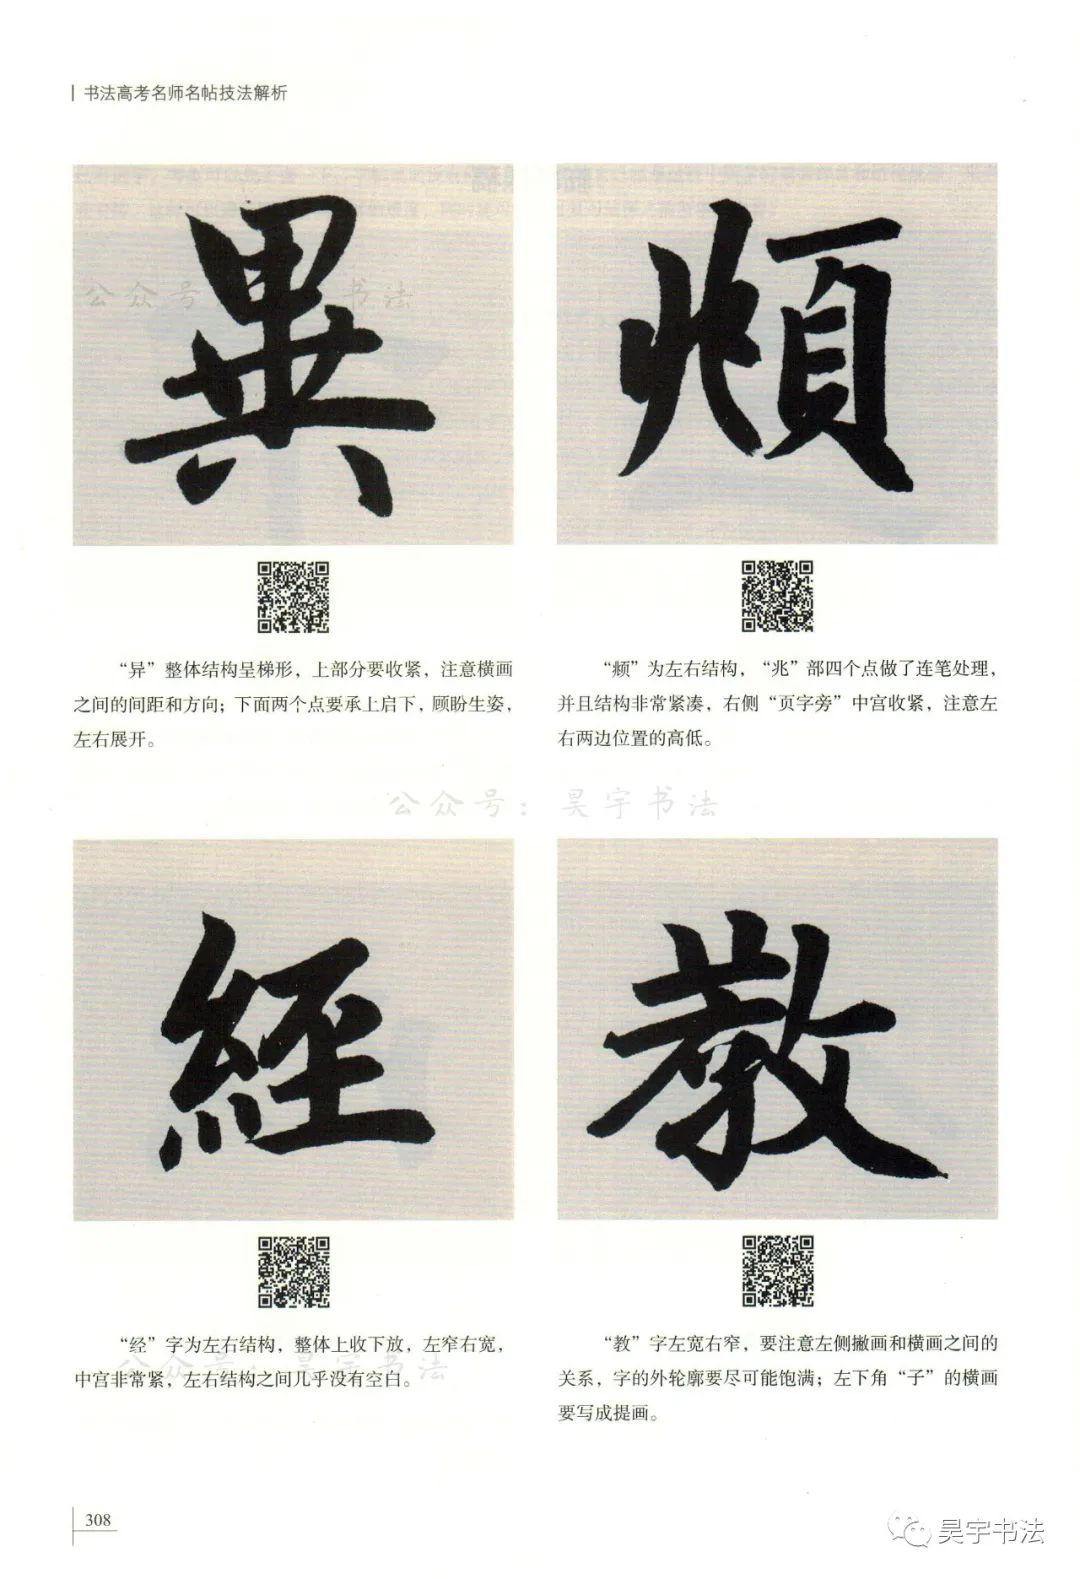 书法高考名师名帖技法解析
異
頫
“异”整体结构呈梯形，上部分要收紧，注意横画
之间的间距和方向；下面两个点要承上启下，顾盼生姿，
左右展开。
“頫”为左右结构，“兆”部四个点做了连笔处理，
并且结构非常紧凑，右侧“页字旁”中宫收紧，注意左
右两边位置的高低。
公众号：昊宇书法
經
教
“经”字为左右结构，整体上收下放，左窄右宽，
中宫非常紧，左右结构之间几乎没有空白。
“教”字左宽右窄，要注意左侧撇画和横画之间的
关系，字的外轮廓要尽可能饱满；左下角“子”的横画
要写成提画。
公众号：昊宇书法
308
昊宇书法